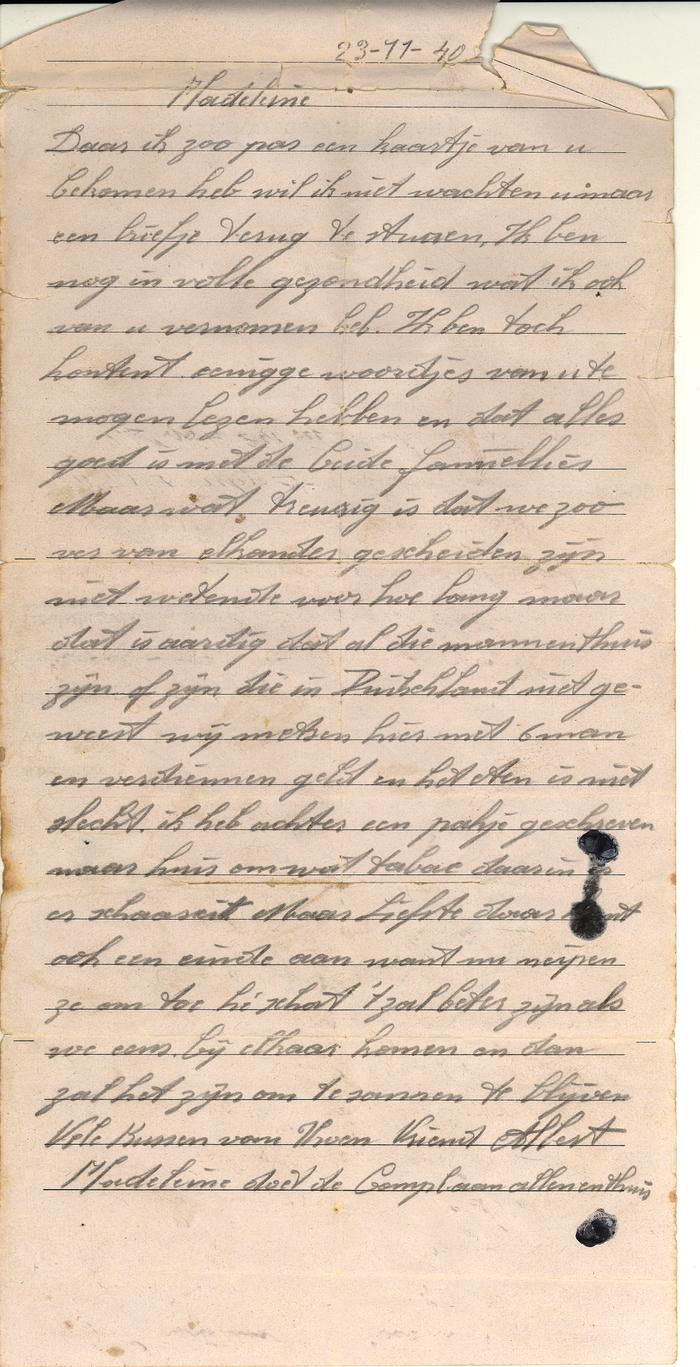 23-11-40
Madeleine
Daar ik zoo pas een kaartje van u
bekomen heb wil ik niet wachten u maar
een briefje terug te sturen, Ik ben
nog in volle gezondheid wat ik ook
van u vernomen heb. Ik ben toch
kontent eenigge woordjes van u te
mogen lezen hebben en dat alles
goed is met de beide famiellies
Maar wat treurig is dat we zoo
ver van elkander gescheiden zijn
niet wetende voor hoe lang maar
dat is aardig dat al die mannen thuis
zijn of zijn die in Duitschland niet ge-
weest wij metsen hier met 6 man
en verdiennen geld en het eten is niet
slecht. ik heb achter een pakje geschreven
naar huis om wat tabac daarin is
er schaarseit Maar Liefste daar
ook een einde aan want nu neipen
ze om toe hé schat 't zal beter zijn als
we eens bij elkaar komen en dan
zal het zijn om te samen te blijven
Vele Kussen van Uwen Vriend Albert
Madeleine doet de Compl aan allen en thuis